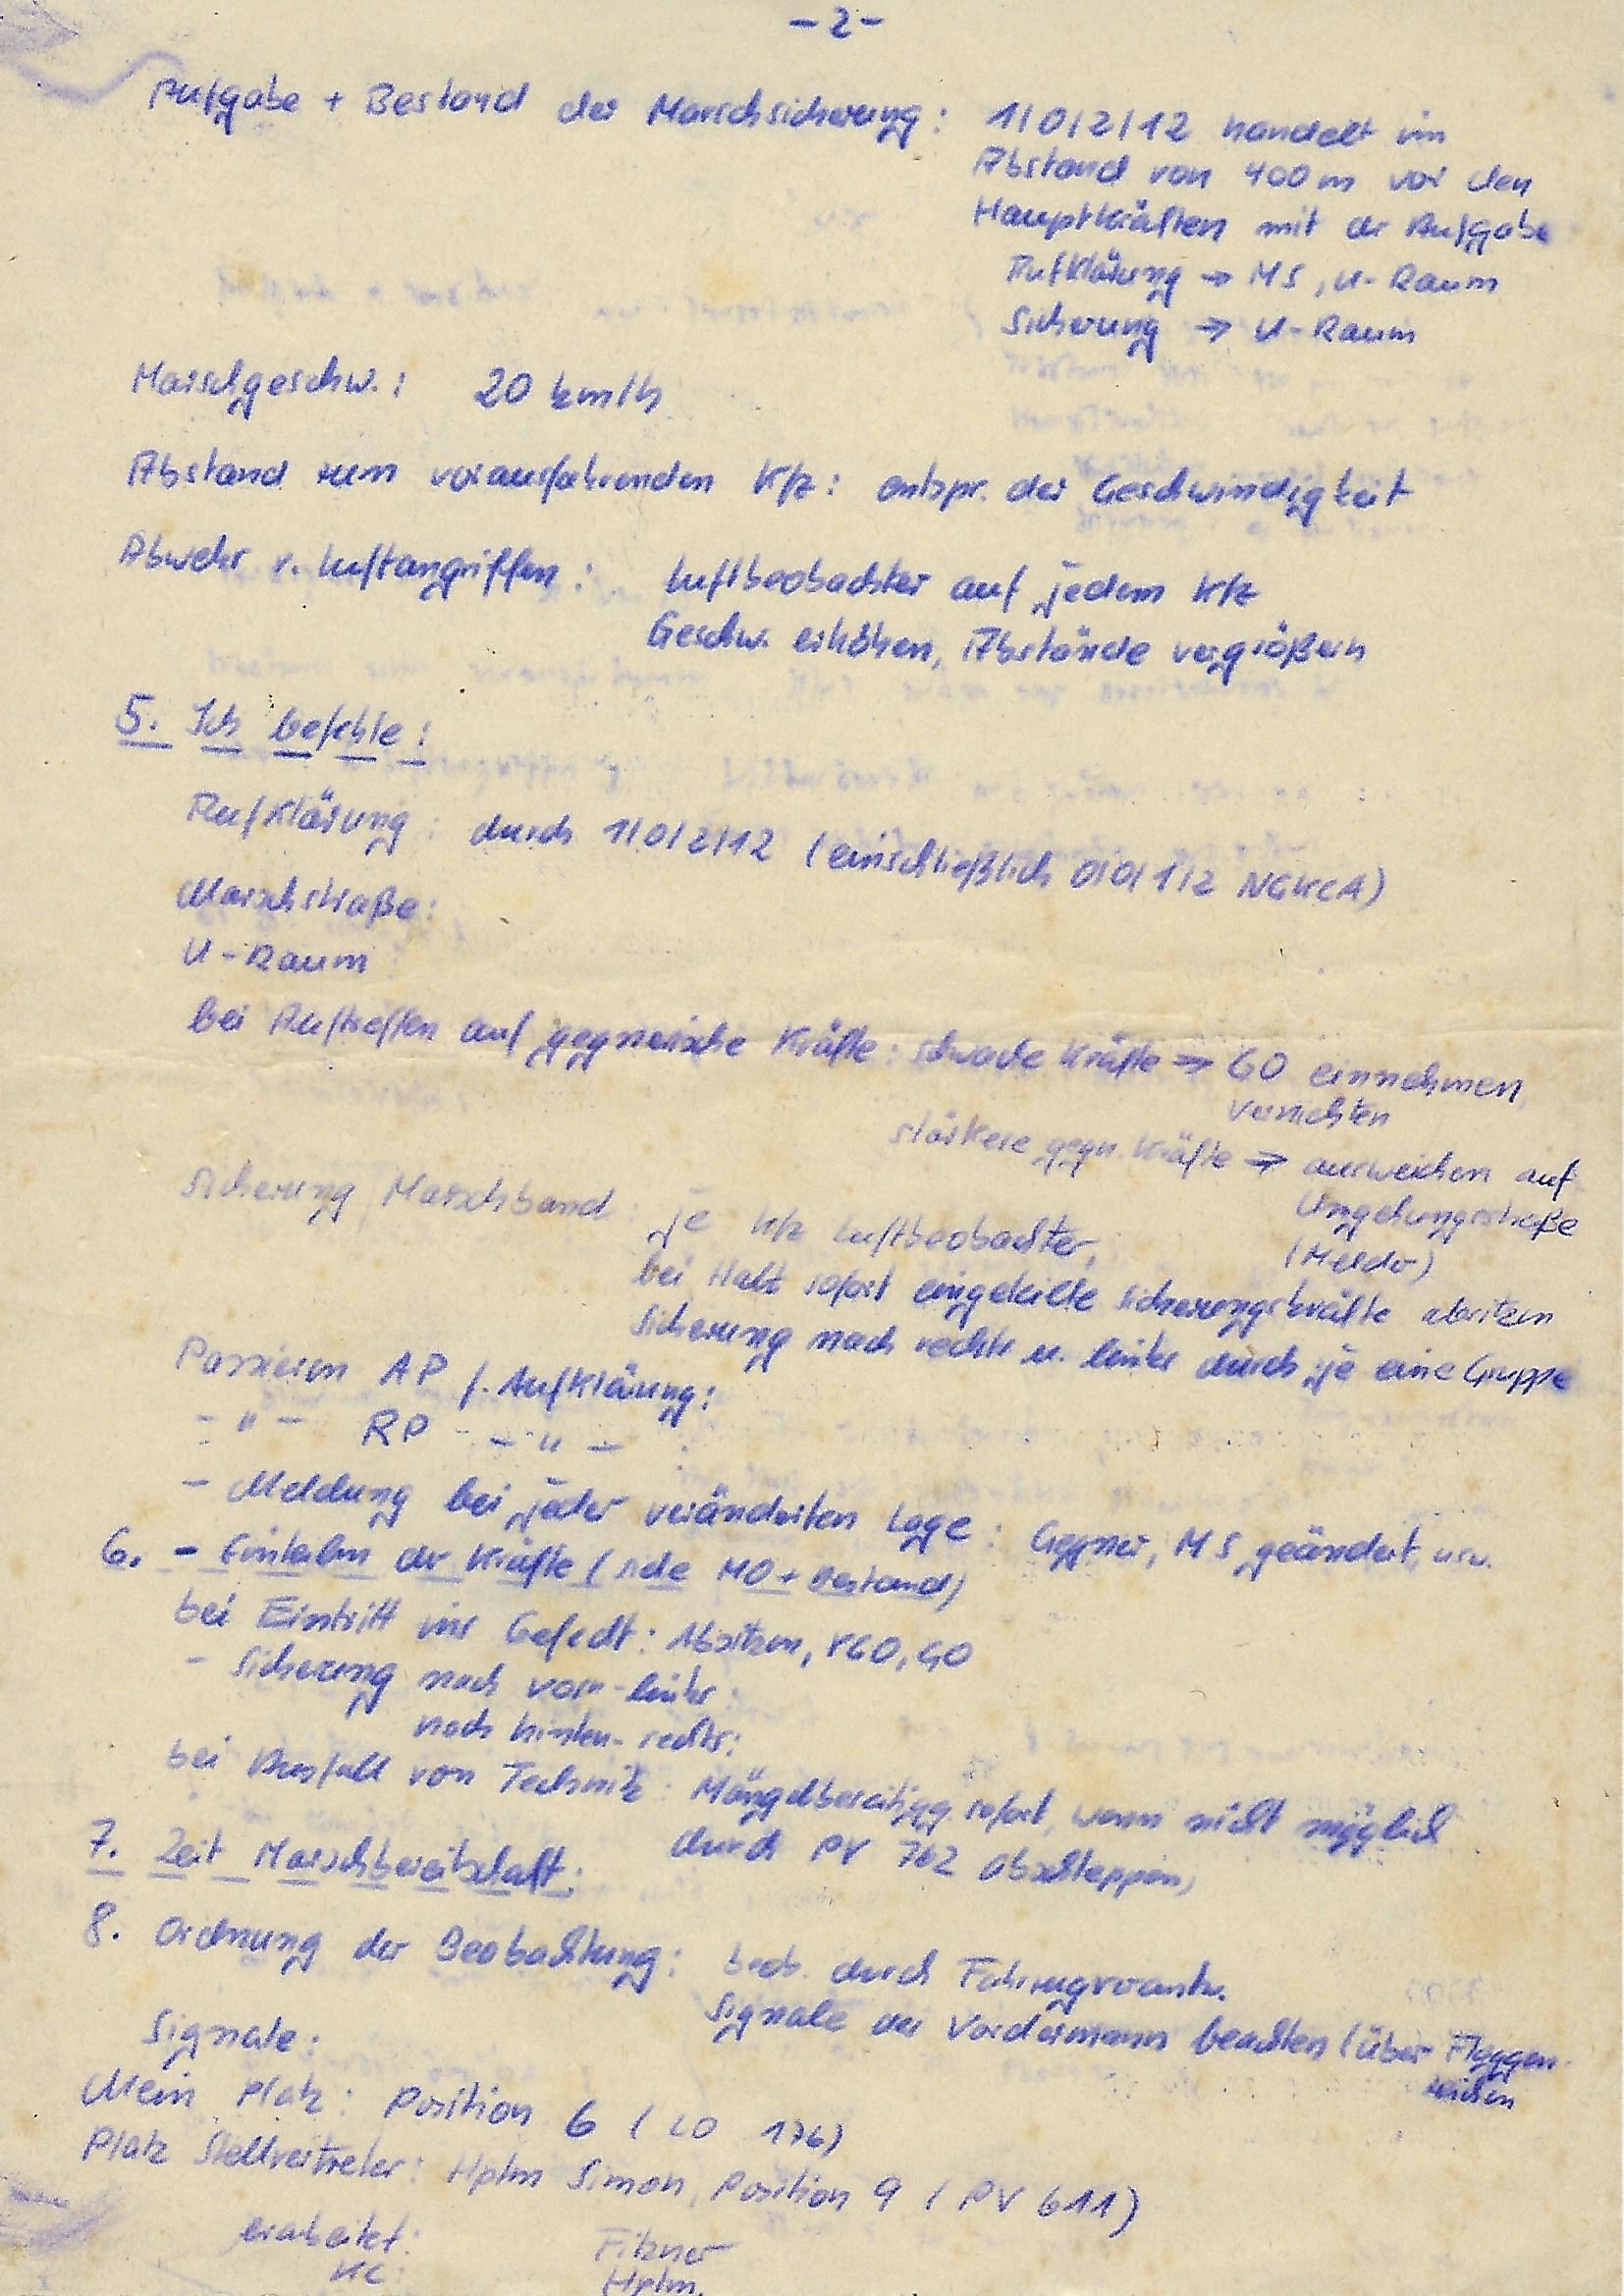 - 2 -
Aufgabe + Bestand der Marschsicherung: 1/0/2/12 handelt im
Abstand von 400 m vor den
Hauptkräften mit dr Aufgabe
Aufklärung → MS, U-Raum
Sicherung → U-Raum
Marschgeschw.: 20 km/h
Abstand zum vorausfahrenden Kfz: entspr. der Geschwindigkeit
Abwehr v. Luftangriffen: Luftbeobachter auf jedem Kfz
Geschw. erhöhen, Abstände vergrößern
5. Ich befehle:
Aufklärung: durch 1/0/2/12 (einschließlich 0/0/1/2 NGKCA)
Marschstraße:
U-Raum
bei Auftreffen auf gegnerische Kräfte: schwache Kräfte ⇒ GO einnehmen
vernichten
stärkere gegn. Kräfte ⇒ ausweichen auf
Umgehungsstraße
(Meldr)
Sicherung Marschband: je Kfz Luftbeobachter,
bei Halt sofort eingeteilte Sicherungskräfte absitzen
Sicherung nach rechts u. links durch je eine Gruppe
Passieren AP f. Aufklärung:
- " - RP - " - :
- Meldung bei jeder veränderten Lage: Gegner, MS geändert, usw.
6. - Einteilen der Kräfte (siehe MO + Bestand)
bei Eintritt ins Gefecht: Absitzen, VGO, GO
- Sicherung nach vorn - links:
nach hinten - rechts:
bei Ausfall von Technik: Mängelbeseitigg sofort, wenn nicht möglich
durch PV 762 abschleppen,
7. Zeit Marschbereitschaft:
8. Ordnung der Beobachtung: beob. durch Fahrzeugverantw.
Signale der Vordermann beachten (über Flaggen-
zeichen
Signale:
Mein Platz: Position 6 (LO 176)
Platz Stellvertreter: Hptm Simon, Position 9 (PV 611)
erarbeitet: Fitzner
KC: Hptm.